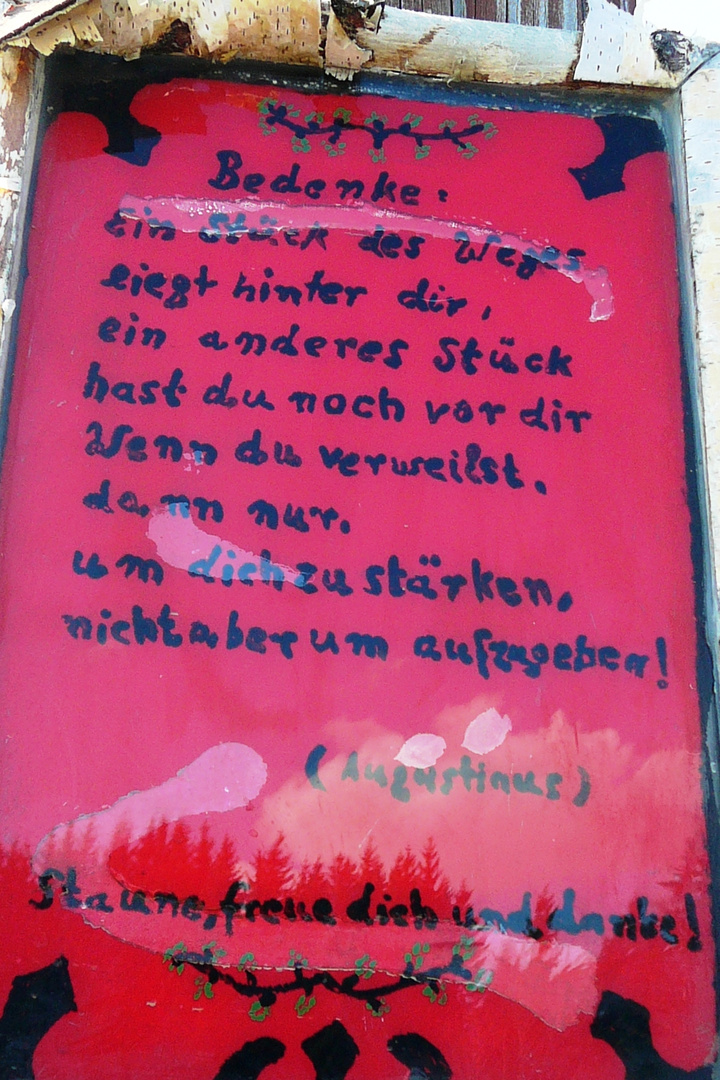 Bedenke:
ein Stück des Weges
liegt hinter dir,
ein anderes Stück
hast du noch vor dir
Wenn du verweilst,
dann nur,
um dich zu stärken,
nicht aber um aufzugeben!
(Augustinus)
Staune, freue dich und danke!